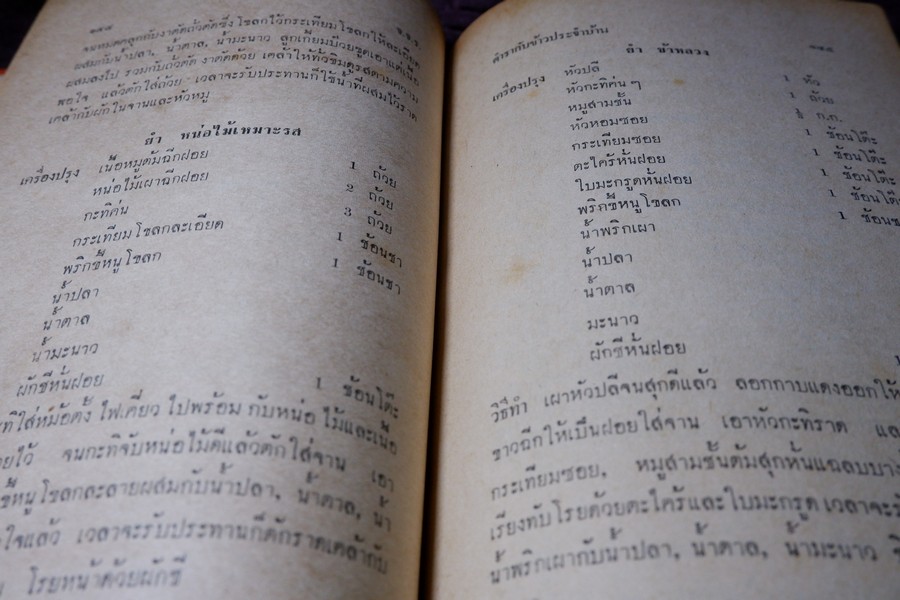 ๒๔๘ ช.ช.ร.
จนหมดคลุกกับงาคั่วถั่วคั่วซึ่งโขลกไว้กระเทียมโขลกให้ละเอียด
ผสมกับน้ำปลา, น้ำตาล, น้ำมะนาว ลูกเกี้ยมบ๊วยขูดเอาแต่เนื้อ
ผสมลงไป รวมกับถั่วคั่ว งาคั่วด้วย เคล้าให้ทั่วชิมดูรสตามความ
พอใจ แล้วตักใส่ถ้วย เวลาจะรับประทานก็ใช้น้ำที่ผสมไว้ราด
เคล้ากับผักในจานและหัวหมู
ยำ หน่อไม้เหมาะรส
เครื่องปรุง เนื้อหมูต้มฉีกฝอย 1 ถ้วย
หน่อไม้เผาฉีกฝอย 2 ถ้วย
กะทิค่น 3 ถ้วย
กระเทียมโขลกละเอียด 1 ช้อนชา
พริกขี้หนูโขลก 1 ช้อนชา
น้ำปลา
น้ำตาล
น้ำมะนาว
ผักชีหั่นฝอย 1 ช้อนโต๊ะ
ทิใส่หม้อตั้งไฟเคี่ยวไปพร้อมกับหน่อไม้และเนื้อ
ไว้ จนกะทิจับหน่อไม้ดีแล้วตักใส่จาน เอา
ขี้หนูโขลกละลายผสมกับน้ำปลา, น้ำตาล, น้ำ
ใจแล้ว เวลาจะรับประทานก็ตักราดเคล้ากับ
โรยหน้าด้วยผักชี
ตำรากับข้าวประจำบ้าน
ยำ ชาววลวง
เครื่องปรุง หัวปลี 1 หัว
หัวกะทิค่น ๆ 1 ถ้วย
หมูสามชั้น ½ ก.ก.
หัวหอมซอย 1 ช้อนโต๊ะ
กระเทียมซอย 1 ช้อนโต๊ะ
ตะไคร้หั่นฝอย 1 ช้อนโต๊ะ
ใบมะกรูดหั่นฝอย 1 ช้อนโต๊ะ
พริกขี้หนูโขลก 1 ช้อนช
น้ำพริกเผา
น้ำปลา
น้ำตาล
มะนาว
ผักชีหั่นฝอย 1
วิธีทำ เผาหัวปลีจนสุกดีแล้ว ลอกกาบแดงออกให้
ขาวฉีกให้เป็นฝอยใส่จาน เอาหัวกะทิราด แล
กระเทียมซอย, หมูสามชั้นต้มสุกหั่นแฉลบบาง
เรียงทับโรยด้วยตะไคร้และใบมะกรูด เวลาจะรั
น้ำพริกเผากับน้ำปลา, น้ำตาล, น้ำมะนาว